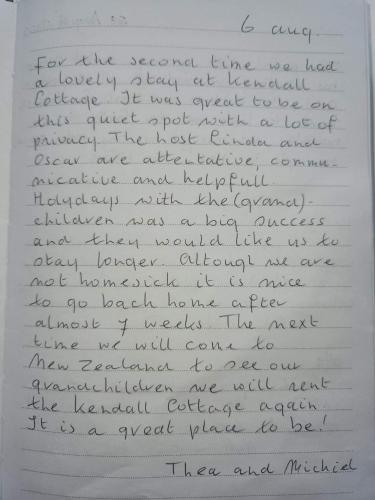 6 aug.
For the second time we had
a lovely stay at Kendall
Cottage. It was great to be on
this quiet spot with a lot of
privacy. The host Linda and
Oscar are attentative, commu-
nicative and helpfull.
Holydays with the (grand)-
children was a big success
and they would like us to
stay longer. Altough we are
not homesick it is nice
to go back home after
almost 7 weeks. The next
time we will come to
New Zealand to see our
grandchildren we will rent
the Kendall Cottage again.
It is a great place to be!
Thea and Michiel